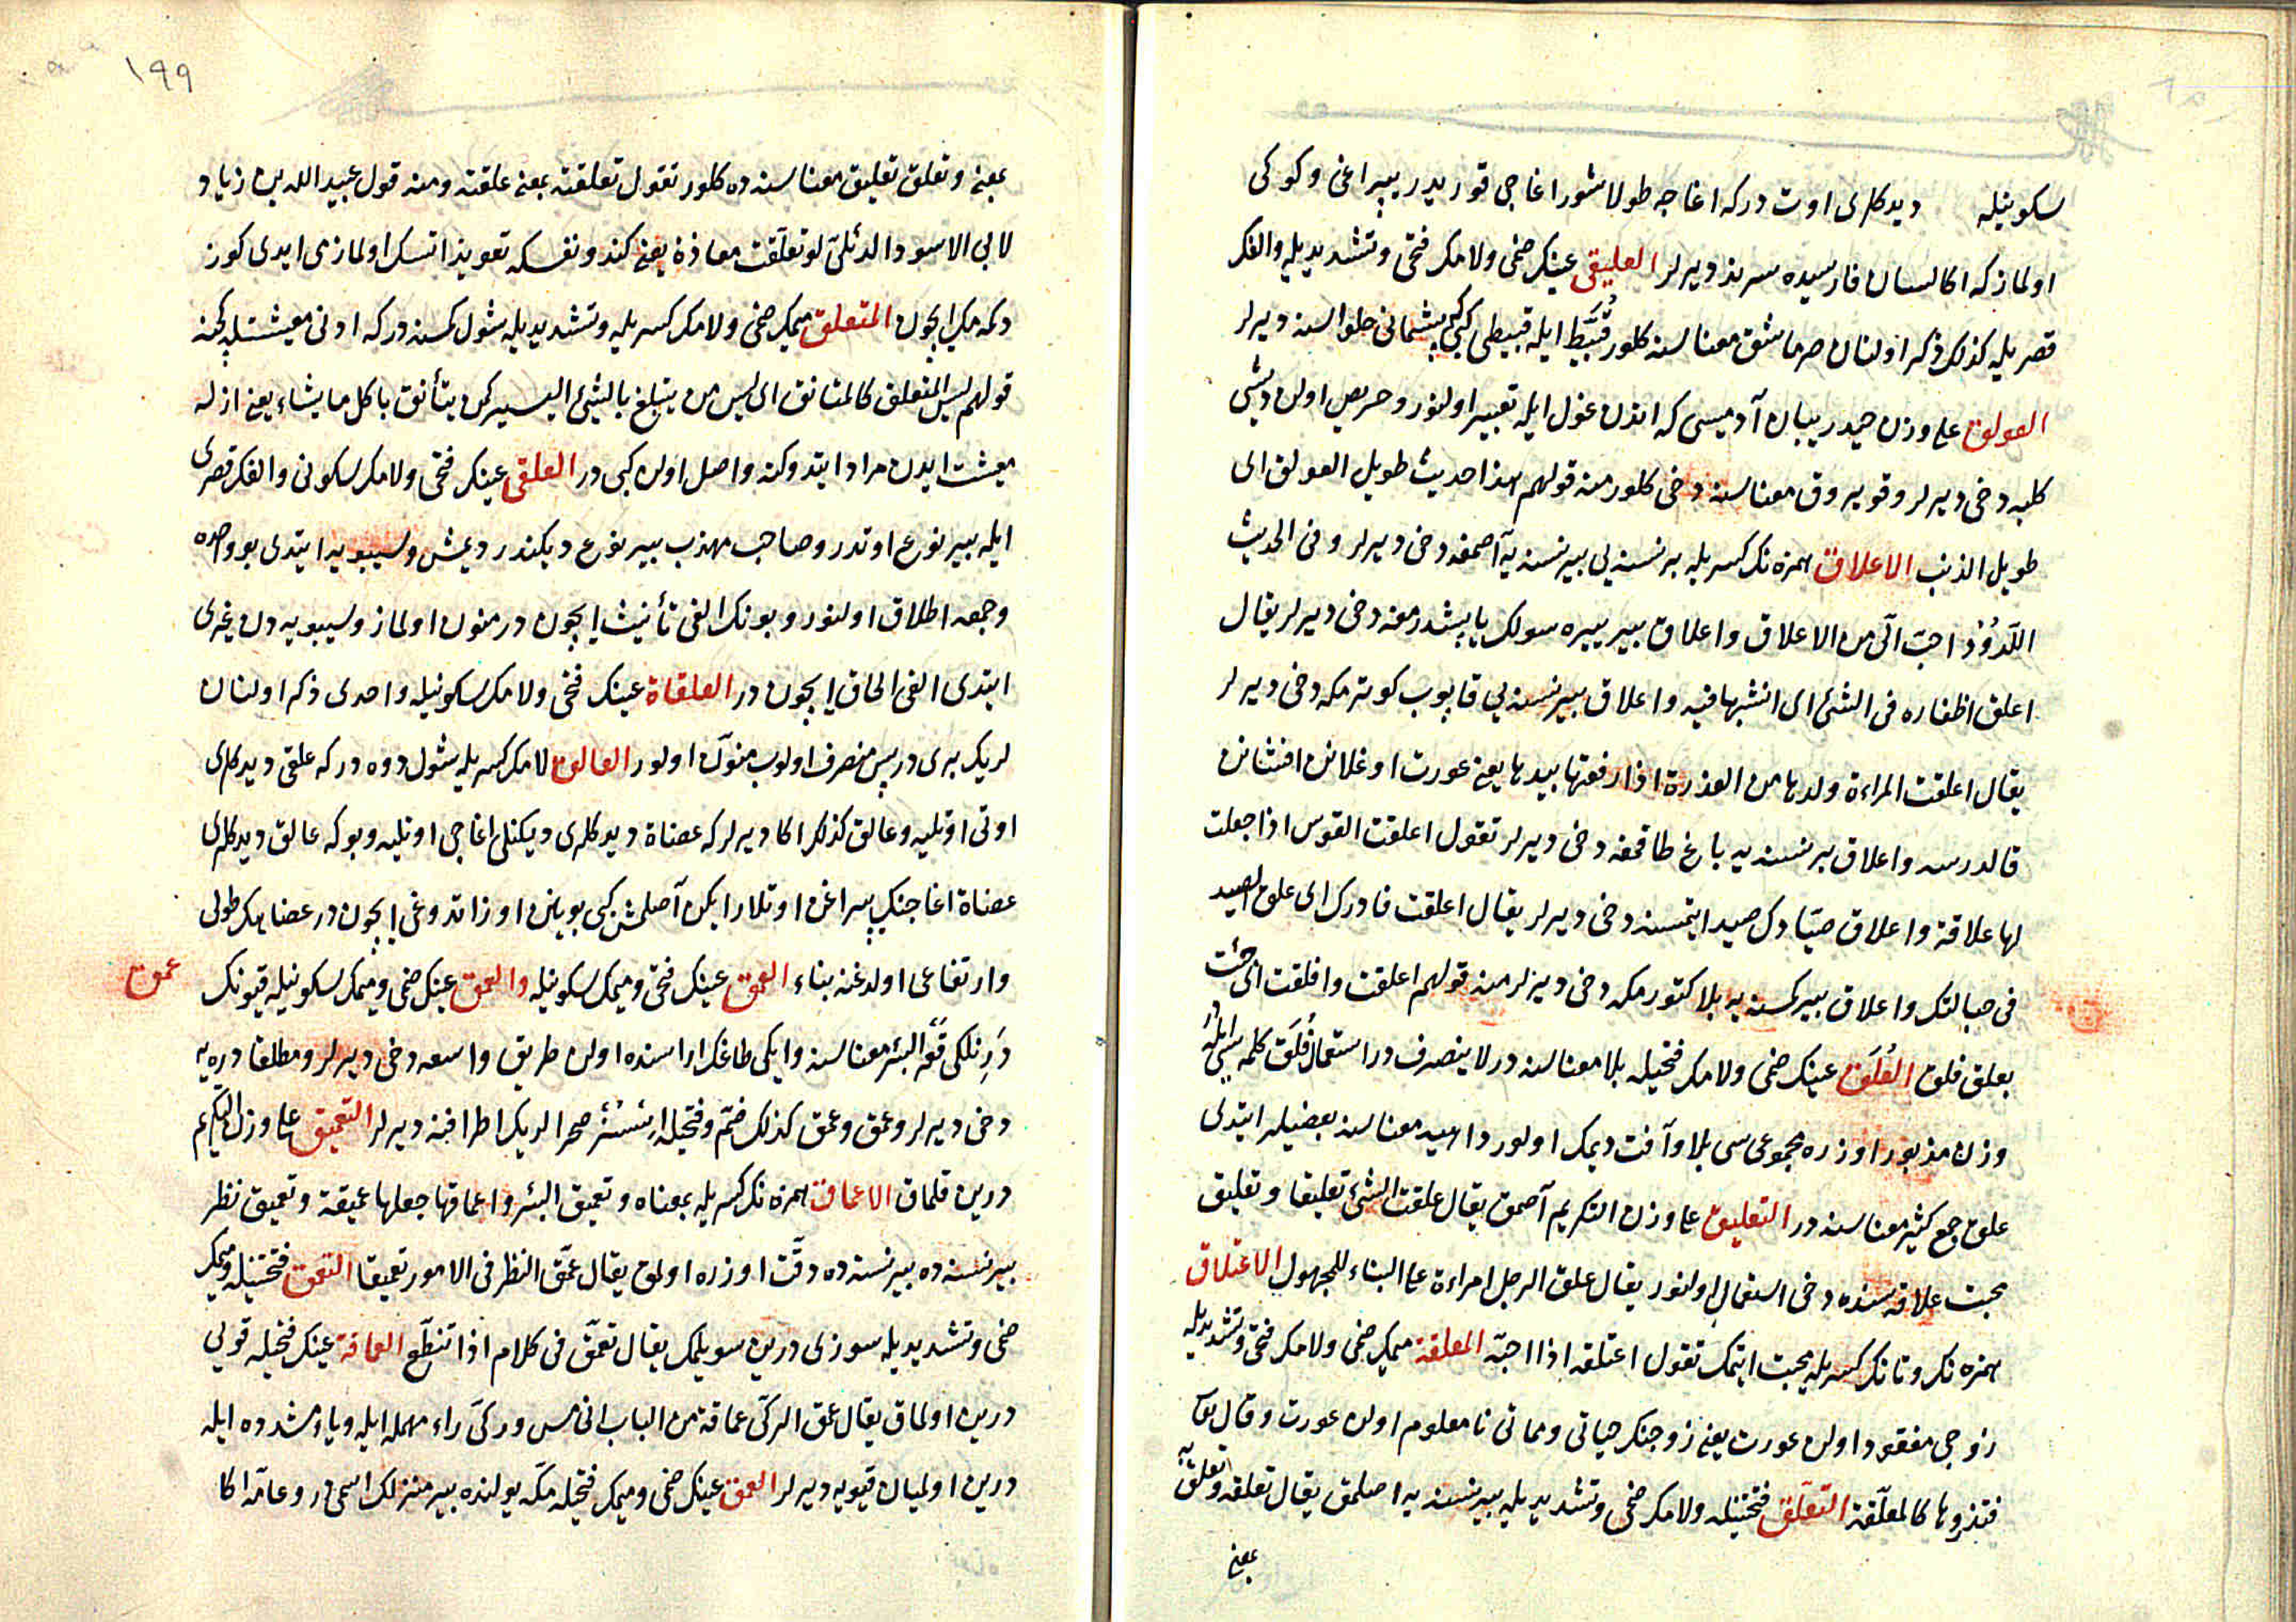 سكونيله ديدكلرى اوت دركه اغاجه طولاشور اغاجى قوريدر يپراغى وكوكى
اولماز كه اكا لسان فارسيده سرند ديرلر العليقى عينك ضمى ولامك فتحى وتشديديله والفك
قصريله كذلك ذكر اولنان صرماشق معناسنه كلور قُبَّيط ايله قبيطى كبى پشمانى حلواسنه ديرلر
العولق على وزن حيدر بيبان آدميسى كه اندن غول ايله تعبير اولنور وحريص اولن ديشى
كلبه دخى ديرلر وقويروق معناسنه دخى كلور منه قولهم هذا حديث طويل العولق اى
طويل الذنب الاعلاق همزه نك كسريله بر نسنه يى بير نسنه يه آصمغه دخى ديرلر وفى الحديث
اللدود احب الى من الاعلاق واعلاق بير ييره سولك ياپشدرمغه دخى ديرلر يقال
اعلق اظفاره فى الشئ اى انشبها فيه واعلاق بير نسنه يى قاپوب كوترمكه دخى ديرلر
يقال اعلقت المراءة ولدها من العذرة اذا رفعتها بيدها يعنى عورت اوغلانى افنثانى
قالدرسه واعلاق بر نسنه يه باغ طاقمغه دخى ديرلر تقول اعلقت القوس اذا جعلت
لها علاقة واعلاق صيادك صيد ايتمسنه دخى ديرلر يقال اعلقت فادرك اى علق الصيد
فى حبالتك واعلاق بير كمسنه يه بلا كتورمكه دخى ديرلر منه قولهم اعلقت وافلقت اى جئت
بعلق فلق العُلَق عينك ضمى ولامك فتحيله بلا معناسنه در لا ينصرف در استعمال فُلَق كلمه سى ايله در
وزن مذبور اوزره مجموعى سى بلا وآفت ديمك اولور داهيه معناسنه بعضيلر ايتدى
علق جمع كثير معناسنه در التعليق على وزن التكريم آصمق يقال علقت الشئ تعليقا وتعليق
محبت علاقه سنده دخى استعمال اولنور يقال علق الرجل امراءة على البناء للمجهول الاعتلاق
همزه نك وتانك كسريله محبت ايتمك تقول اعتلقه اذا احبه المعلقة ميمك ضمى ولامك فتحى وتشديديله
زوجى مفقود اولن عورت يعنى زوجنك حياتى ومماتى نامعلوم اولن عورت وقال تعالى
فتذروها كالمعلقة التعلق فتحتينله ولامك ضمى وتشديديله بير نسنه يه اصلمق يقال تعلقه وتعلق به
بمعنى
١٩٩
بمعنى وتعلق تعليق معناسنده كلور تقول تعلقته بمعنى علقته ومنه قول عبيد الله بن زياد
لابى الاسود الدئلى لو تعلقت معاذة يعنى كندو نفسكه تعويذ اتسك اولمازمى ايدى كوز
دكمه مك ايچون المتعلق ميمك ضمى ولامك كسريله وتشديديله شول كمسنه دركه ادنى معيشتله كچنه
قولهم ليس المتعلق كالمتانق اى ليس من يتبلغ بالشئ اليسير كمن يتأنق ياكل ما يشاء يعنى ازله
معيشت ايدن مراد ايتدوكنه واصل اولن كبى در العلقى عينك فتحى ولامك سكونى والفك قصرى
ايله بير نوع اوتدر وصاحب مهذب بير نوع ديكندر ديمش وسيبويه ايتدى بو واحده
وجمعه اطلاق اولنور وبونك الفى تأنيث ايچون در منون اولماز وسيبويه دن غيرى
ايتدى الفى الحاق ايچون در العلقاة عينك فتحى ولامك سكونيله واحدى ذكر اولنان
لريك برى در پس منصرف اولوب منون اولور العالق لامك كسريله شول دوه دركه علقى ديدكلرى
اوتى اوتليه وعالق كذلك اكا ديرلر كه عضاة ديدكلرى ديكنلى اغاجى اوتليه وبوكه عالق ديدكلرى
عضاة اغاجنك يپراغن اوتلار ايكن آصلمش كبى بوينن اوزاتدوغى ايچون در عضاهك طولى
وارتفاعى اولدغنه بناء العمق عينك فتحى وميمك سكونيله والعمق عينك ضمى وميمك سكونيله قيونك
عمق
دَرِنلكى قعر البئر معناسنه وايكى طاغك اراسنده اولن طريق واسعه دخى ديرلر ومطلقا دره يه
دخى ديرلر وعمق وعمق كذلك ضم وفتحيله صحرالريك اطرافنه ديرلر التعميق على وزن التكريم
درين قلمق الاعماق همزه نك كسريله بمعناه وتعميق البئر واعماقها جعلها عميقة وتعميق نظر
بير نسنه ده بير نسنه ده دقت اوزره اولمق يقال عمق النظر فى الامور تعميقا التعمق فتحتينله وميمك
ضمى وتشديديله سوزى درين سويلمك يقال تعمق فى كلام اذا تنطع العماقة عينك فتحيله قويى
درين اولماق يقال عمق الركى عماقة من الباب الخامس وركى راء مهمله ايله وياء مشدده ايله
درين اولميان قيويه ديرلر العمق عينك ضمى وميمك فتحيله مكه يولنده بير منزلك اسمى در وعامه اكا